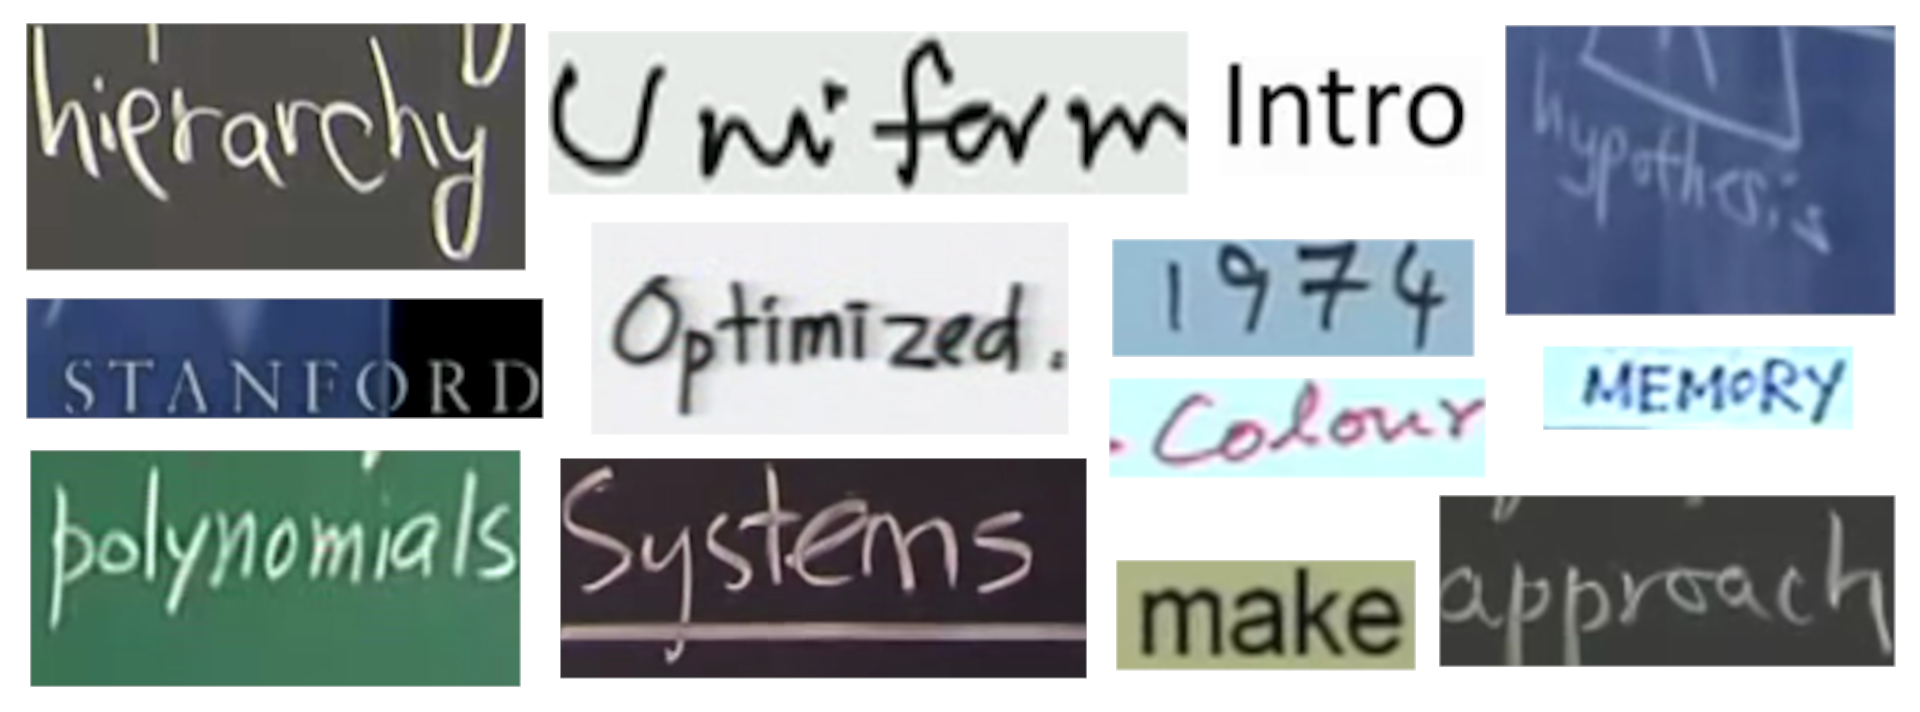 hierarchy
Uniform
Intro
hypothesis
STANFORD
Optimized.
1974
Colour
MEMORY
polynomials
Systems
make
approach